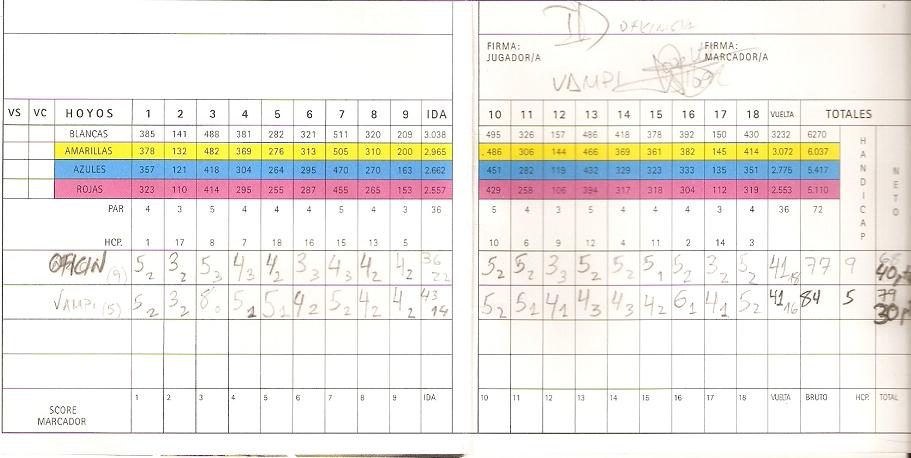 OFICINCIA
FIRMA: JUGADOR/A
FIRMA: MARCADOR/A
VAMPI
VS VC HOYOS 1 2 3 4 5 6 7 8 9 IDA 10 11 12 13 14 15 16 17 18 VUELTA TOTALES
BLANCAS 385 141 488 381 282 321 511 320 209 3.038 495 326 157 486 418 378 392 150 430 3232 6270
AMARILLAS 378 132 482 369 276 313 505 310 200 2.965 486 306 144 466 369 361 382 145 414 3.072 6.037
AZULES 357 121 418 304 264 295 470 270 163 2.662 451 282 119 432 329 323 333 135 351 2.775 5.417
ROJAS 323 110 414 295 255 287 455 265 153 2.557 429 258 106 394 317 318 304 112 319 2.553 5.110
HANDICAP
NETO
PAR 4 3 5 4 4 4 5 4 3 36 5 4 3 5 4 4 4 3 4 36 72
HCP. 1 17 8 7 18 16 15 13 5 10 6 9 12 4 11 2 14 3
OFICIN (9) 5 2 3 2 5 3 4 3 4 2 3 3 4 3 4 2 4 2 36 22 5 2 5 2 3 3 5 2 5 2 5 1 5 2 3 2 5 2 41 18 77 9 68 40
VAMPI (5) 5 2 3 2 8 0 5 1 5 1 4 2 5 2 4 2 4 2 43 14 5 2 5 1 4 1 4 3 4 3 4 2 6 1 4 1 5 2 41 16 84 5 79 30
SCORE MARCADOR 1 2 3 4 5 6 7 8 9 IDA 10 11 12 13 14 15 16 17 18 VUELTA BRUTO HCP. TOTAL